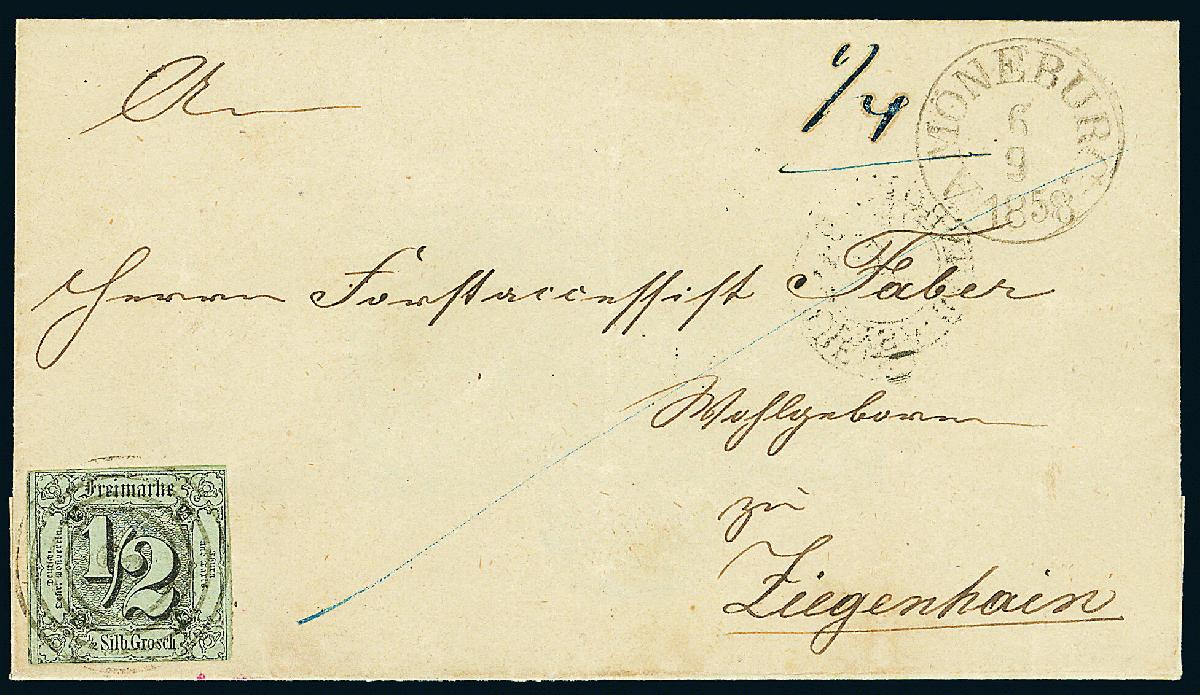 An
1/4
AMÖNEBURG
6
9
1858
Herrn Forstaccessist Faber
Wohlgeborn
zu
Ziegenhain
Freimarke
1/2
½ Silb. Grosch.